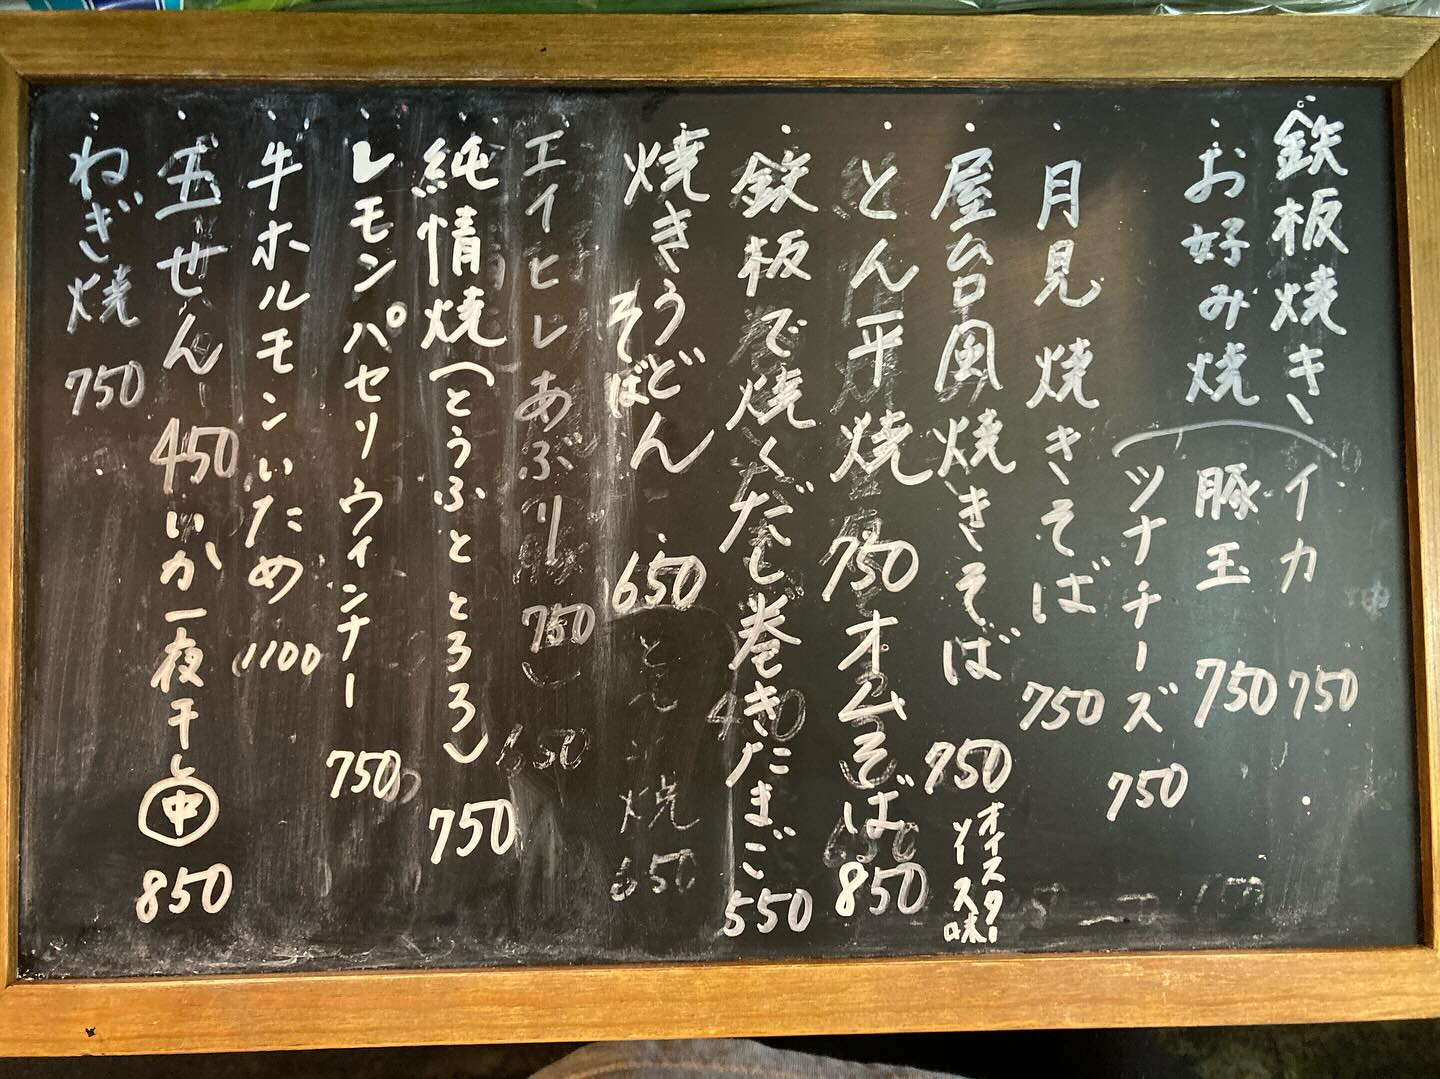 鉄板焼き イカ 750
お好み焼 豚玉 750
ツナチーズ 750
月見焼きそば 750
屋台風焼きそば 750 オイスターソース味
とん平焼 750 オムそば 850
鉄板で焼くだし巻きたまご 550
焼きうどん 650
そば
エイヒレあぶり 750
純情焼(とうふととろろ) 750
レモンパセリウィンナー 750
牛ホルモンいため 1100
玉せん 450 いか一夜干し 中 850
ねぎ焼 750